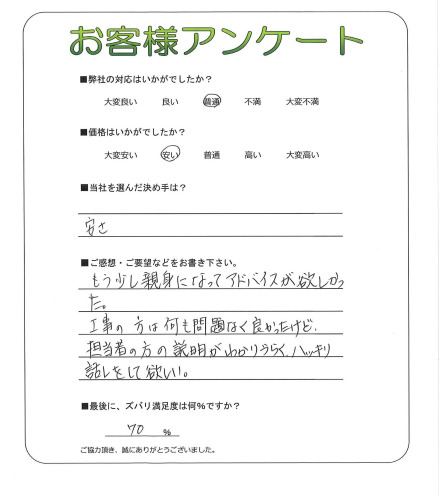 お客様アンケート
■弊社の対応はいかがでしたか？
大変良い 良い 普通 不満 大変不満
■価格はいかがでしたか？
大変安い 安い 普通 高い 大変高い
■当社を選んだ決め手は？
安さ
■ご感想・ご要望などをお書き下さい。
もう少し親身になってアドバイスが欲しかっ
た。
工事の方は何も問題なく良かったけど、
担当者の方の説明がわかりずらく、ハッキリ
話しをして欲しい。
■最後に、ズバリ満足度は何%ですか？
70 %
ご協力頂き、誠にありがとうございました。